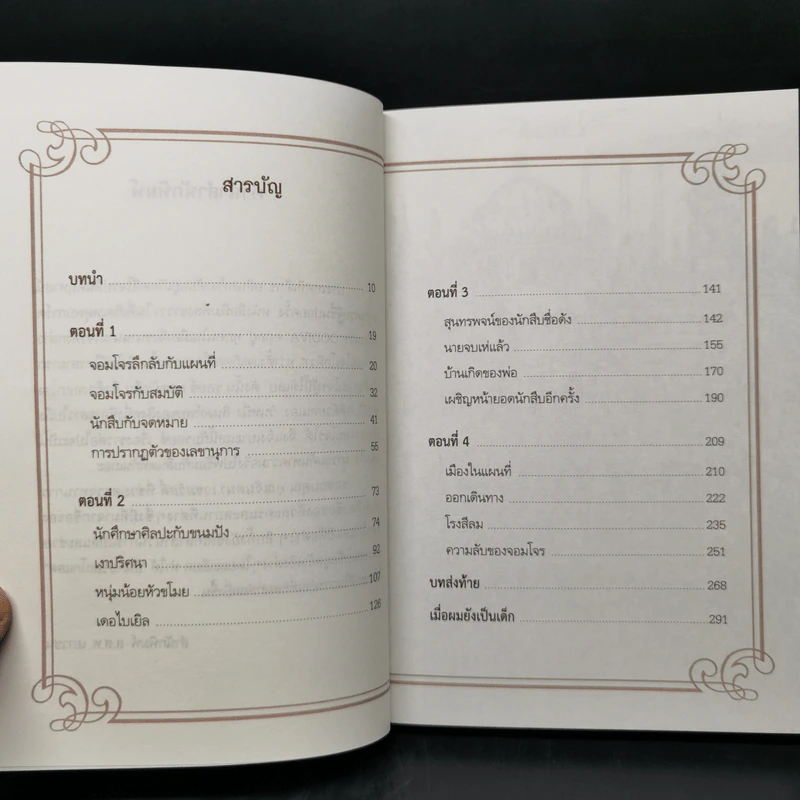 สารบัญ
บทนำ 10
ตอนที่ 1 19
จอมโจรลึกลับกับแผนที่ 20
จอมโจรกับสมบัติ 32
นักสืบกับจดหมาย 41
การปรากฏตัวของเลขานุการ 55
ตอนที่ 2 73
นักศึกษาศิลปะกับขนมปัง 74
เงาปริศนา 92
หนุ่มน้อยหัวขโมย 107
เดอไบเยิล 126
ตอนที่ 3 141
สุนทรพจน์ของนักสืบชื่อดัง 142
นายจบเห่แล้ว 155
บ้านเกิดของพ่อ 170
เผชิญหน้ายอดนักสืบอีกครั้ง 190
ตอนที่ 4 209
เมืองในแผนที่ 210
ออกเดินทาง 222
โรงสีลม 235
ความลับของจอมโจร 251
บทส่งท้าย 268
เมื่อผมยังเป็นเด็ก 291